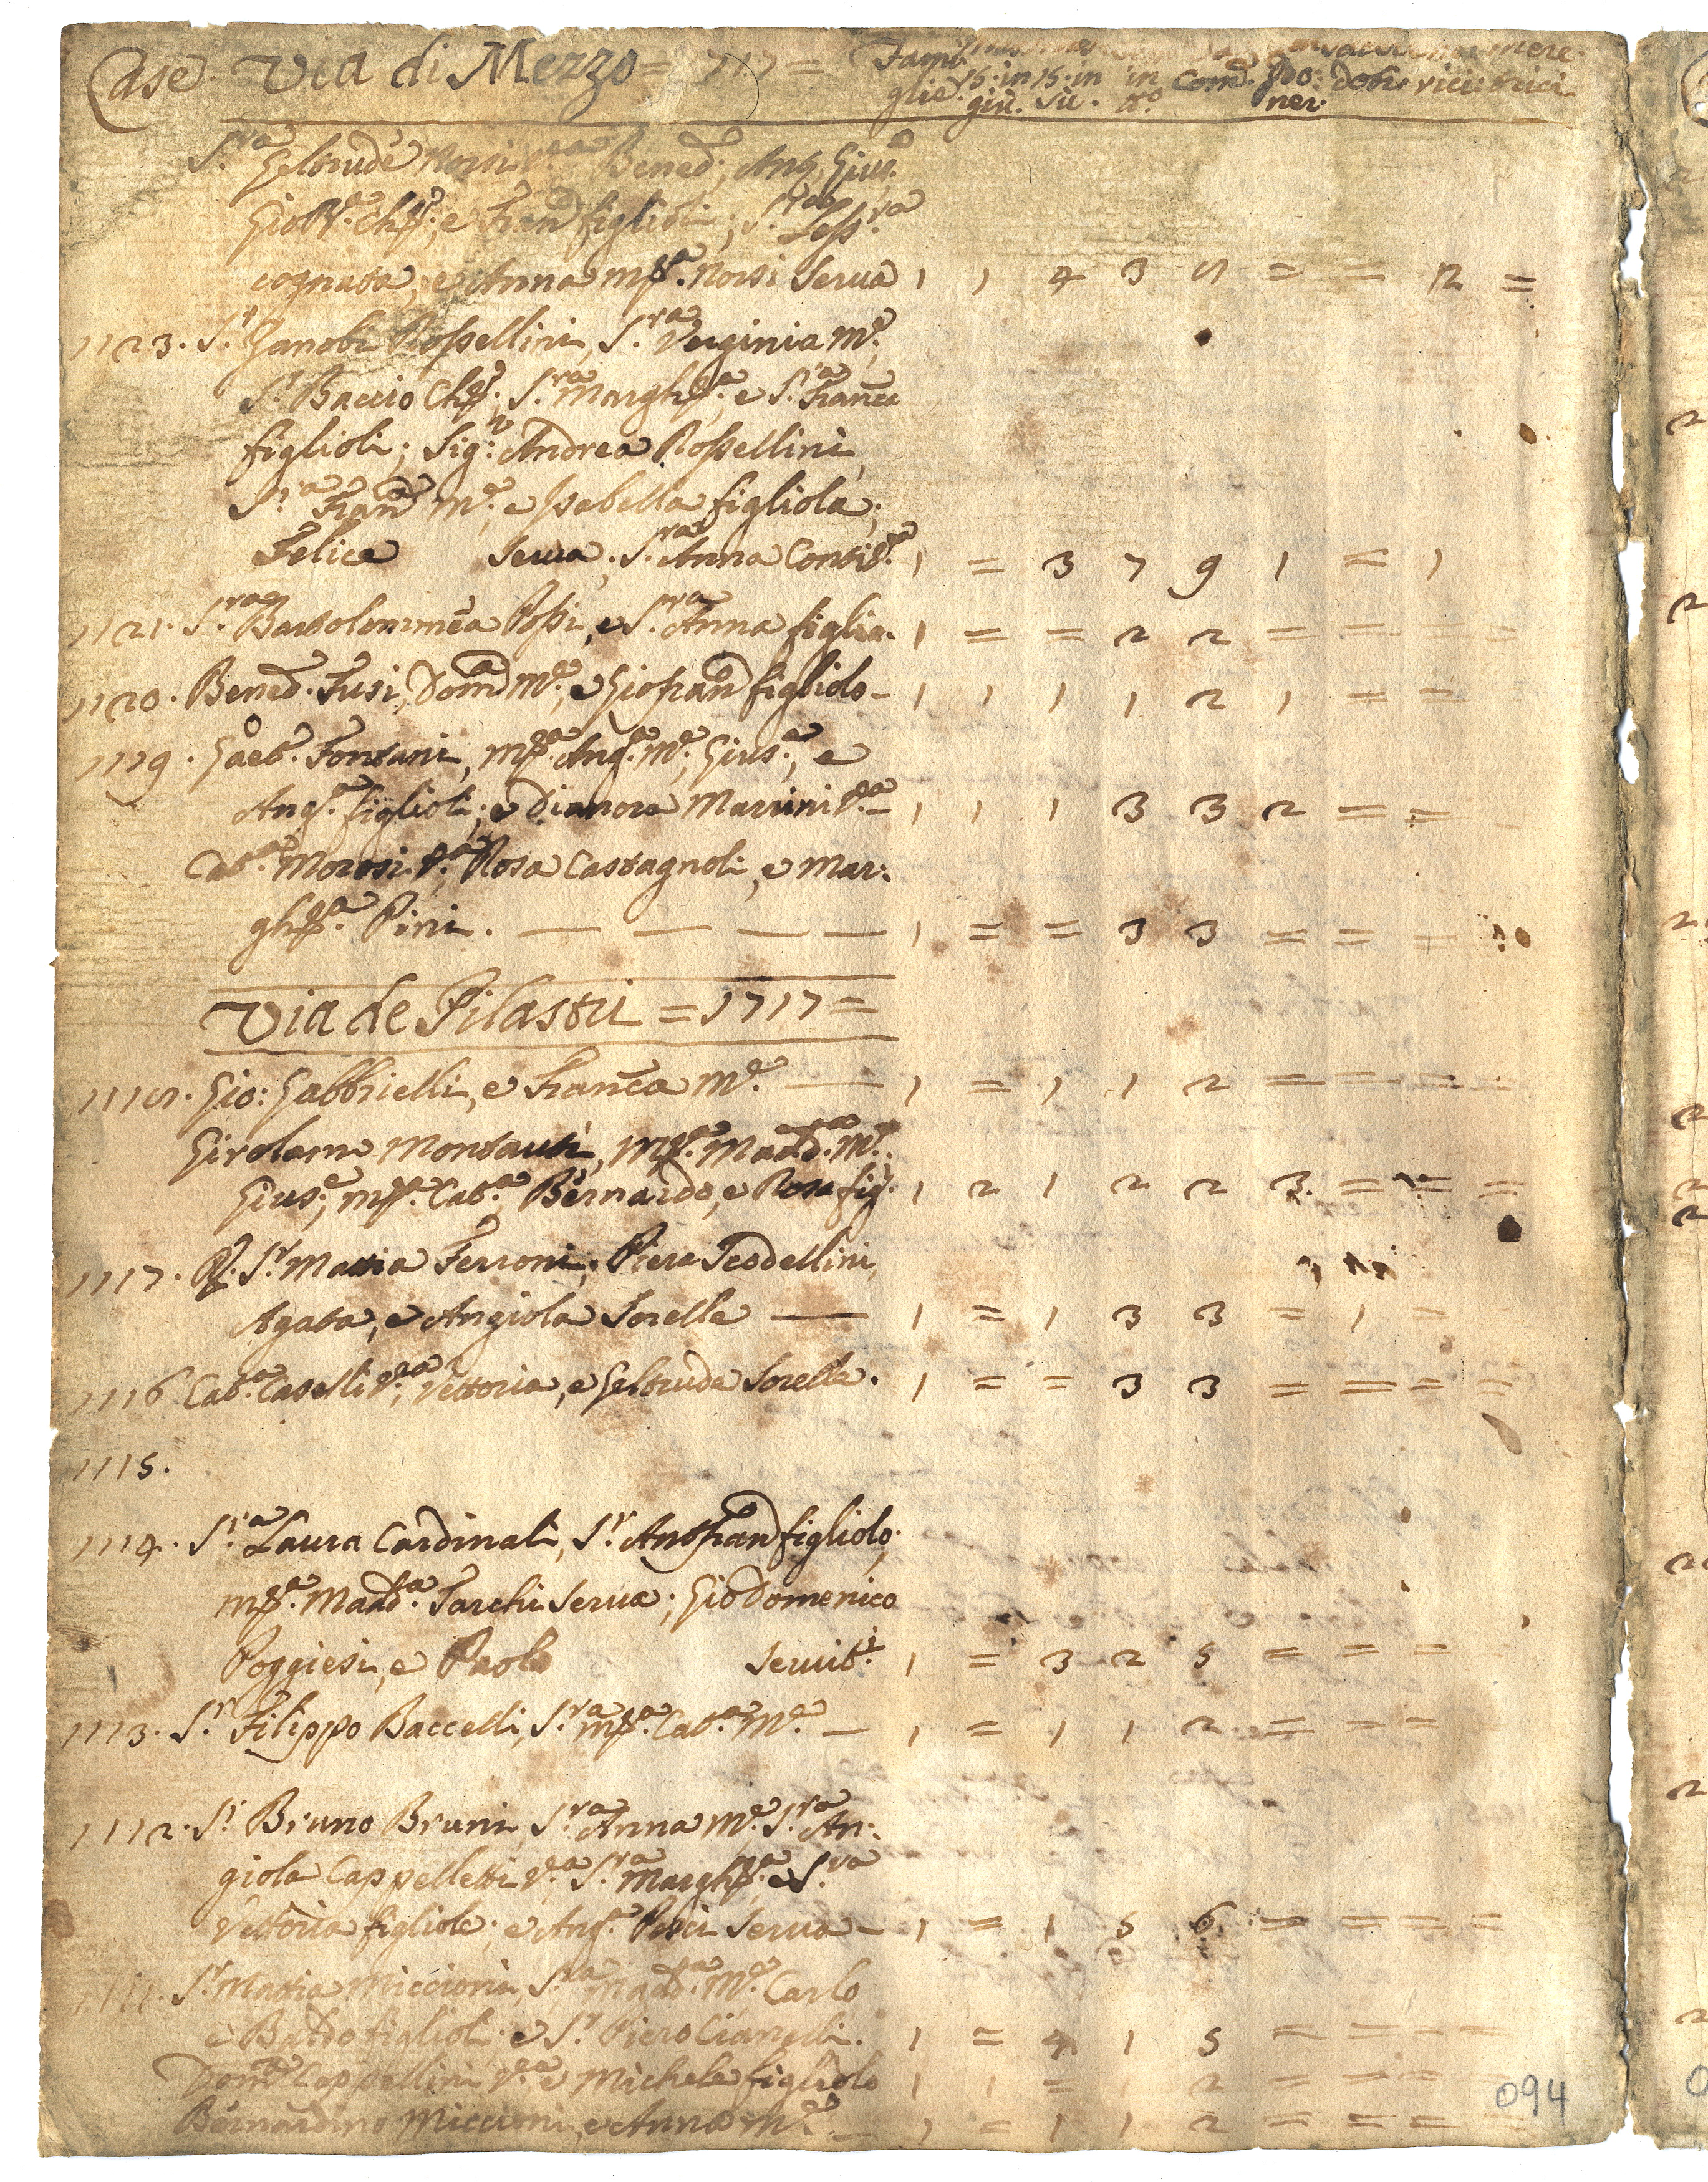 Case. Via di Mezzo = 1717 = Fami nere.
glie. 15. in 15. in in Com. Po: dohr. rice: trici
giù. sù. tt.º ner:
S.ra Geltrude Norsi V.a Bened., Ang. Gius.
Gio: Chr. e Fran figlioli; S.ra Less.ra
cognata, e Anna Mra. Norsi Serua 1 1 4 3 5 = = 2 =
1123. S.r Zanobi Rossellini, S.ra Verginia M.e
S.r Baccio Cher. S.ra Margh.a e S.ra Franca
figlioli; Sig.r Andrea Rossellini,
S.ra Fran.a M.e, e Isabella figliola;
Felice Serua; S.ra Anna Conti V.a 1 = 3 7 9 1 = 1
1121. S.ra Bartolommea Rossi, e S.ra Anna figlia. 1 = = 2 2 = = = =
1120. Bened. Fusi, Dom.a M.e, e Giofran figliolo - 1 1 1 1 2 1 = =
1119. Gaet. Fontani, Mra. Ang.a M.e, Gius.a, e
Ang.a figlioli; e Dianora Marrini V.a - 1 1 1 3 3 2 = =
Cat.a Morosi V.a, Rosa Castagnoli, e Mar:
gh.a Pini. — — — — 1 = = 3 3 = = =
Via de Pilastri = 1717 =
1118. Gio: Gabbrielli, e Franca M.e — 1 = 1 1 2 = = = =
Girolamo Montauti, Mra. Madd.a M.e
Gius.e, Mra. Cat.a, Bernardo, e Rosa fig.i 1 2 1 2 2 3 = = =
1117. R. S.r Mattia Ferroni; Piera Teodellini,
Agata, e Angiola Sorelle — 1 = 1 3 3 = 1 =
1116 Cat.a Caselli V.a, Vettoria, e Geltrude Sorelle. 1 = = 3 3 = = = =
1115.
1114. S.ra Laura Cardinali, S.r Antfran figliolo;
Mra. Madd.a Tarchi Serua; Gio Domenico
Poggiesi, e Paolo Seruit.i 1 = 3 2 5 = = =
1113. S.r Filippo Baccelli, S.ra Mra. Cat.a M.e - 1 = 1 1 2 = = =
1112. S.r Bruno Bruni, S.ra Anna M.e S.ra An:
giola Cappelletti V.a S.ra Margh.a e S.ra
Vettoria figliole; e Ang.a Pesci Serua - 1 = 1 5 6 = = = =
1111. S.r Mattia Miccioni, S.ra Madd.a M.e Carlo
e Baldo figlioli. e S.r Piero Ciangoli. 1 = 4 1 5 = = = =
Dom.a Cappellini V.a e Michele figliolo 1 1 = 1 2 = = =
Bernardino Miccioni, e Anna M.e — 1 = 1 1 2 = = = =
094